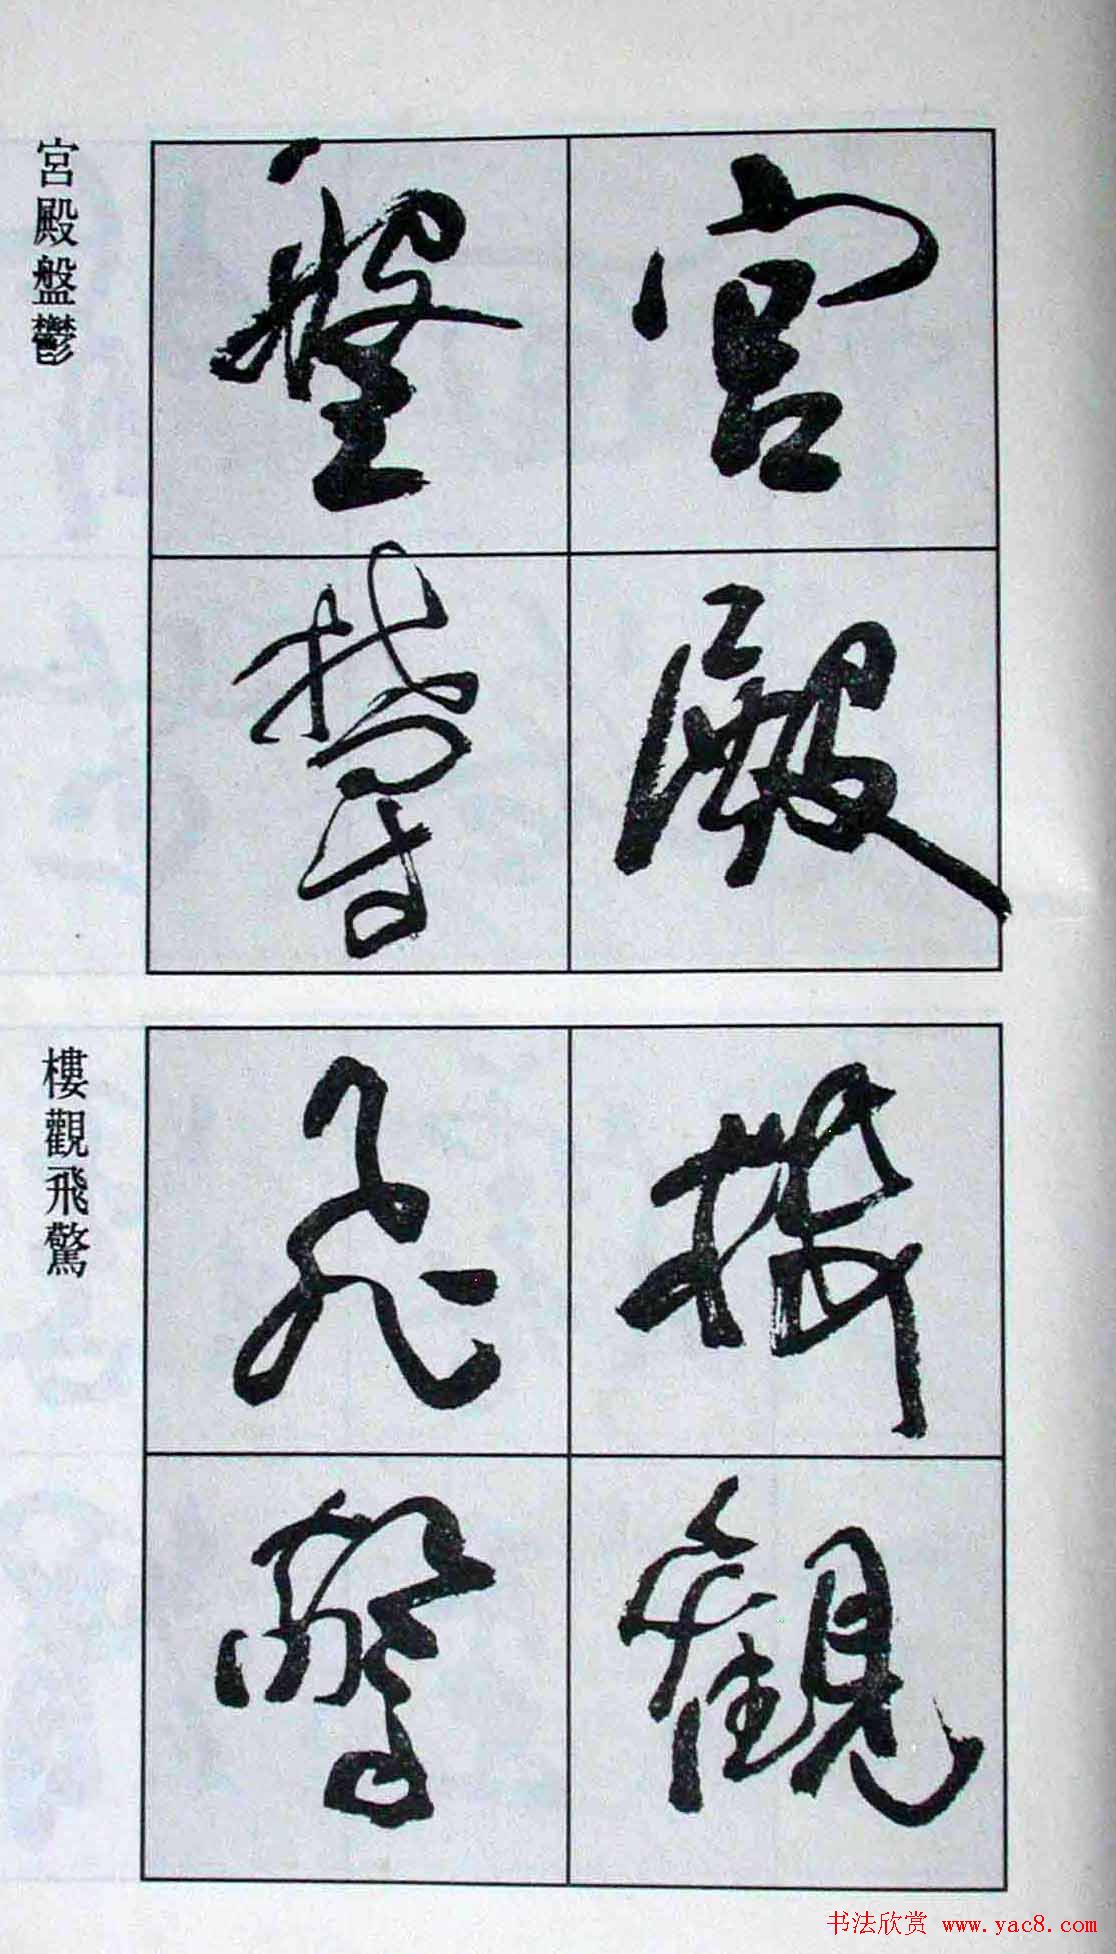 宮殿
盤鬱
宮殿盤鬱
樓觀
飛驚
樓觀飛驚
书法欣赏 www.yac8.com